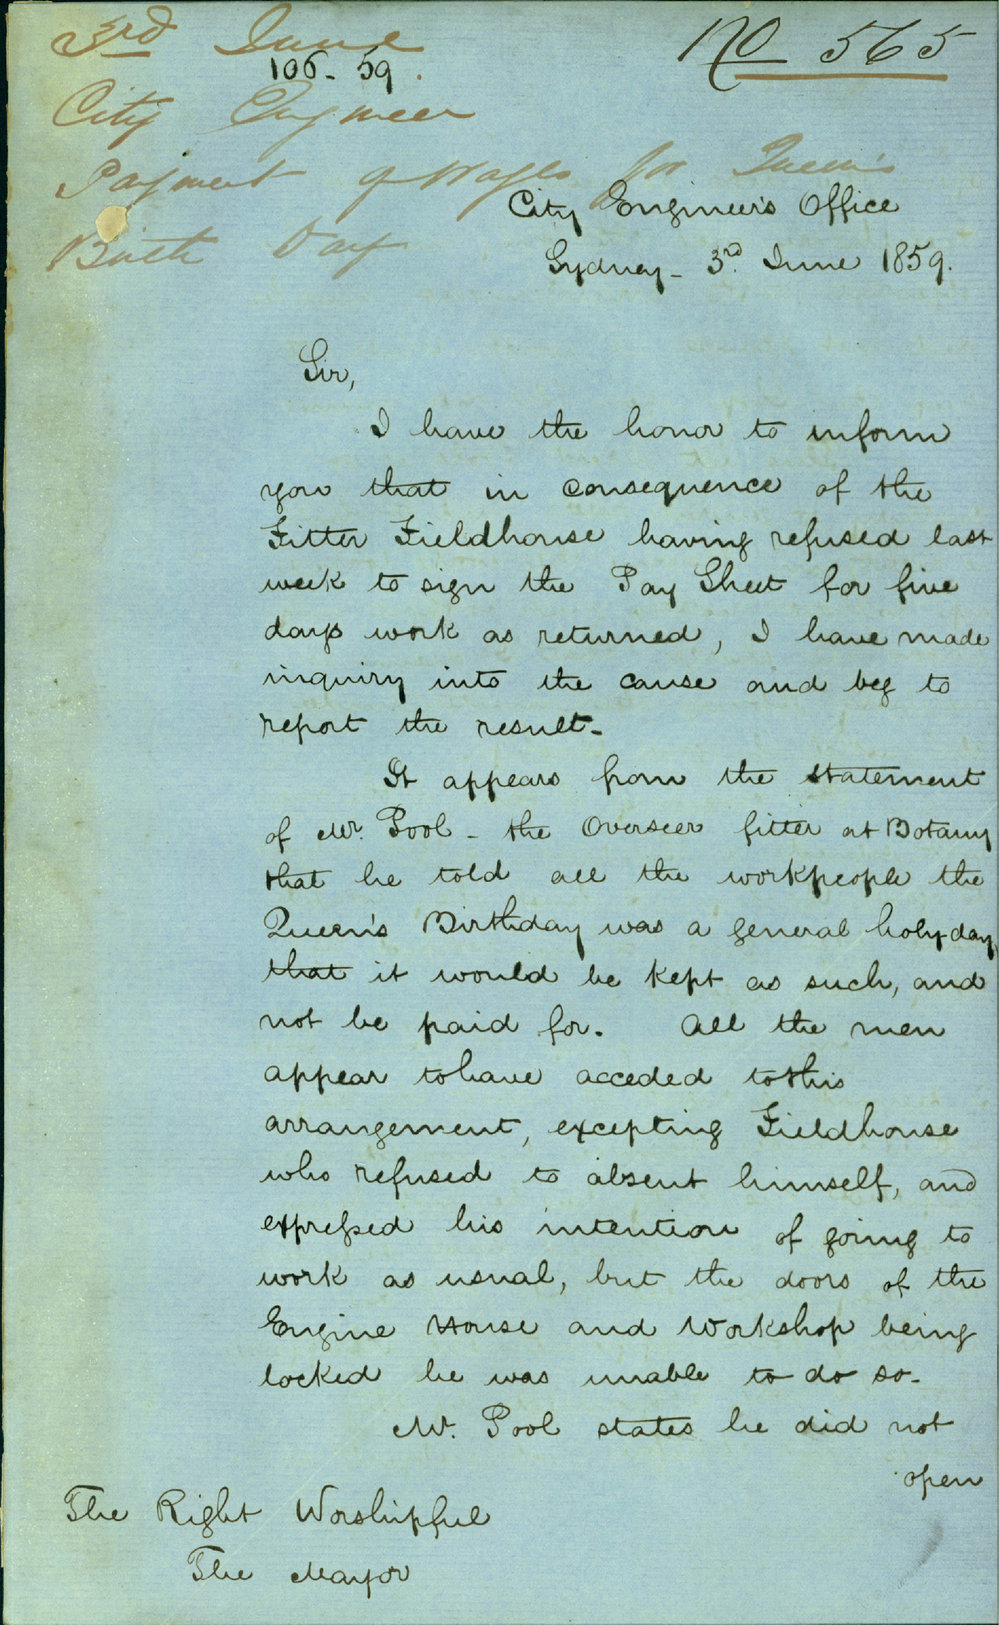 3rd June
No 565
106-59.
City Engineer
Payment of Wages for Queen's
Birth Day
City Engineer's Office
Sydney - 3rd. June 1859.
Sir,
I have the honor to inform
you that in consequence of the
Fitter Fieldhouse having refused last
week to sign the Pay Sheet for five
days work as returned, I have made
inquiry into the cause and beg to
report the result.-
It appears from the statement
of Mr. Pool - the Overseer fitter at Botany
that he told all the workpeople the
Queen's Birthday was a general holy-day,
that it would be kept as such, and
not be paid for. All the men
appear to have acceded to this
arrangement, excepting Fieldhouse
who refused to absent himself, and
expressed his intention of going to
work as usual, but the doors of the
Engine House and Workshop being
locked he was unable to do so.
Mr. Pool states he did not
open
The Right Worshipful
The Mayor